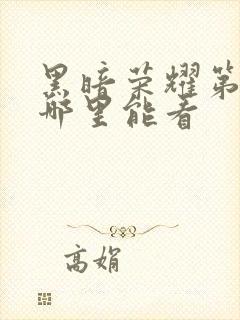 黑暗荣耀第
哪里能看
高娟